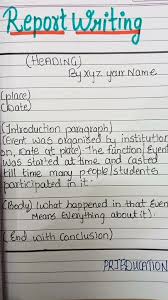 Report Writing
(HEADING)
By Xyz your Name
(place)
(Date)
(Introduction paragraph)
(Event was organised by institution
on, Date at place). The function/Event
was started at time and lasted
till time many people/students
participated in it.
(Body) (what happened in that Even
Means Everything about it).
(End with conclusion)
PRJEDUCATION